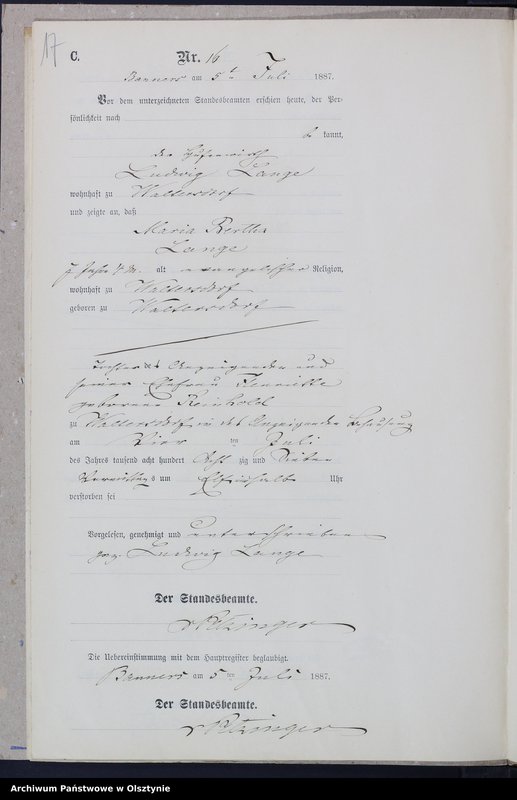 17
C. Nr. 16
Banners am 5ten Juli 1887.
Vor dem unterzeichneten Standesbeamten erschien heute, der Per-
sönlichkeit nach
be kannt,
der Hufenwirth
Ludwig Lange
wohnhaft zu Waltersdorf
und zeigte an, daß
Maria Bertha
Lange
7 Jahr alt evangelischer Religion,
wohnhaft zu Waltersdorf
geboren zu Waltersdorf
Tochter des Anzeigenden und
seiner Ehefrau Henriette
geborene Reinhold
zu Waltersdorf in des Anzeigenden Behausung
am Vier ten Juli
des Jahres tausend acht hundert Acht zig und Sieben
Vormittags um Elfeinhalb Uhr
verstorben sei
Vorgelesen, genehmigt und unterschrieben
gez. Ludwig Lange
Der Standesbeamte.
Die Uebereinstimmung mit dem Hauptregister beglaubigt.
Banners am 5ten Juli 1887.
Der Standesbeamte.
Archiwum Państwowe w Olsztynie